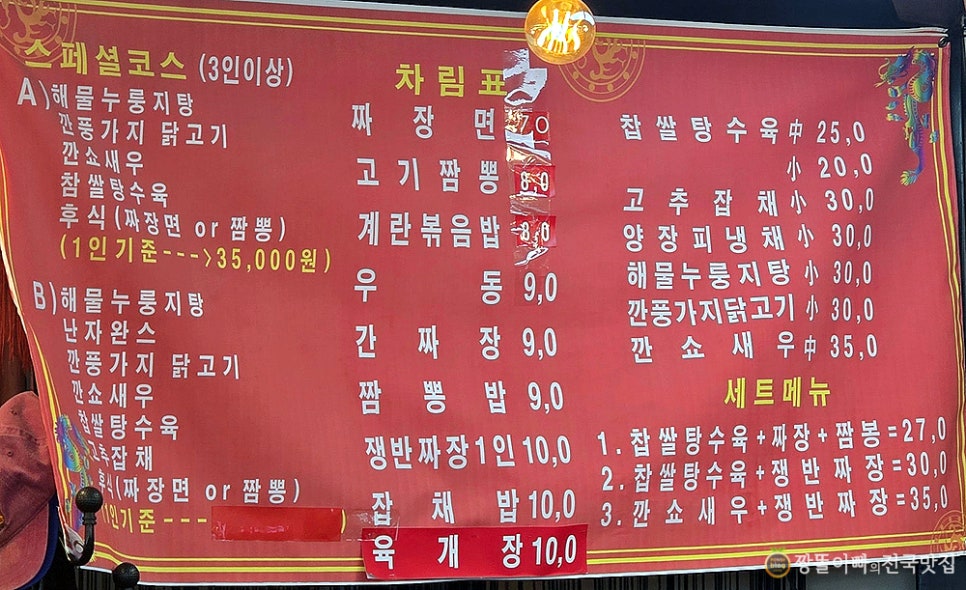 스페셜코스 (3인이상)
A)해물누룽지탕
깐풍가지 닭고기
깐쇼새우
참쌀탕수육
후식(짜장면 or 짬뽕)
(1인기준--->35,000원)
B)해물누룽지탕
난자완스
깐풍가지 닭고기
깐쇼새우
찹쌀탕수육
고추잡채
후식(짜장면 or 짬뽕)
1인기준---
차림표
짜장면 7,0
고기짬뽕 8,0
계란볶음밥 8,0
우동 9,0
간짜장 9,0
짬뽕밥 9,0
쟁반짜장1인 10,0
잡채밥 10,0
육개장 10,0
찹쌀탕수육 中 25,0
小 20,0
고추잡채 小 30,0
양장피냉채 小 30,0
해물누룽지탕 小 30,0
깐풍가지닭고기 小 30,0
깐쇼새우 中 35,0
세트메뉴
1.찹쌀탕수육+짜장+짬봉=27,0
2.찹쌀탕수육+쟁반짜장=30,0
3.깐쇼새우+쟁반짜장=35,0
blog 깡똘아빠의전국맛집